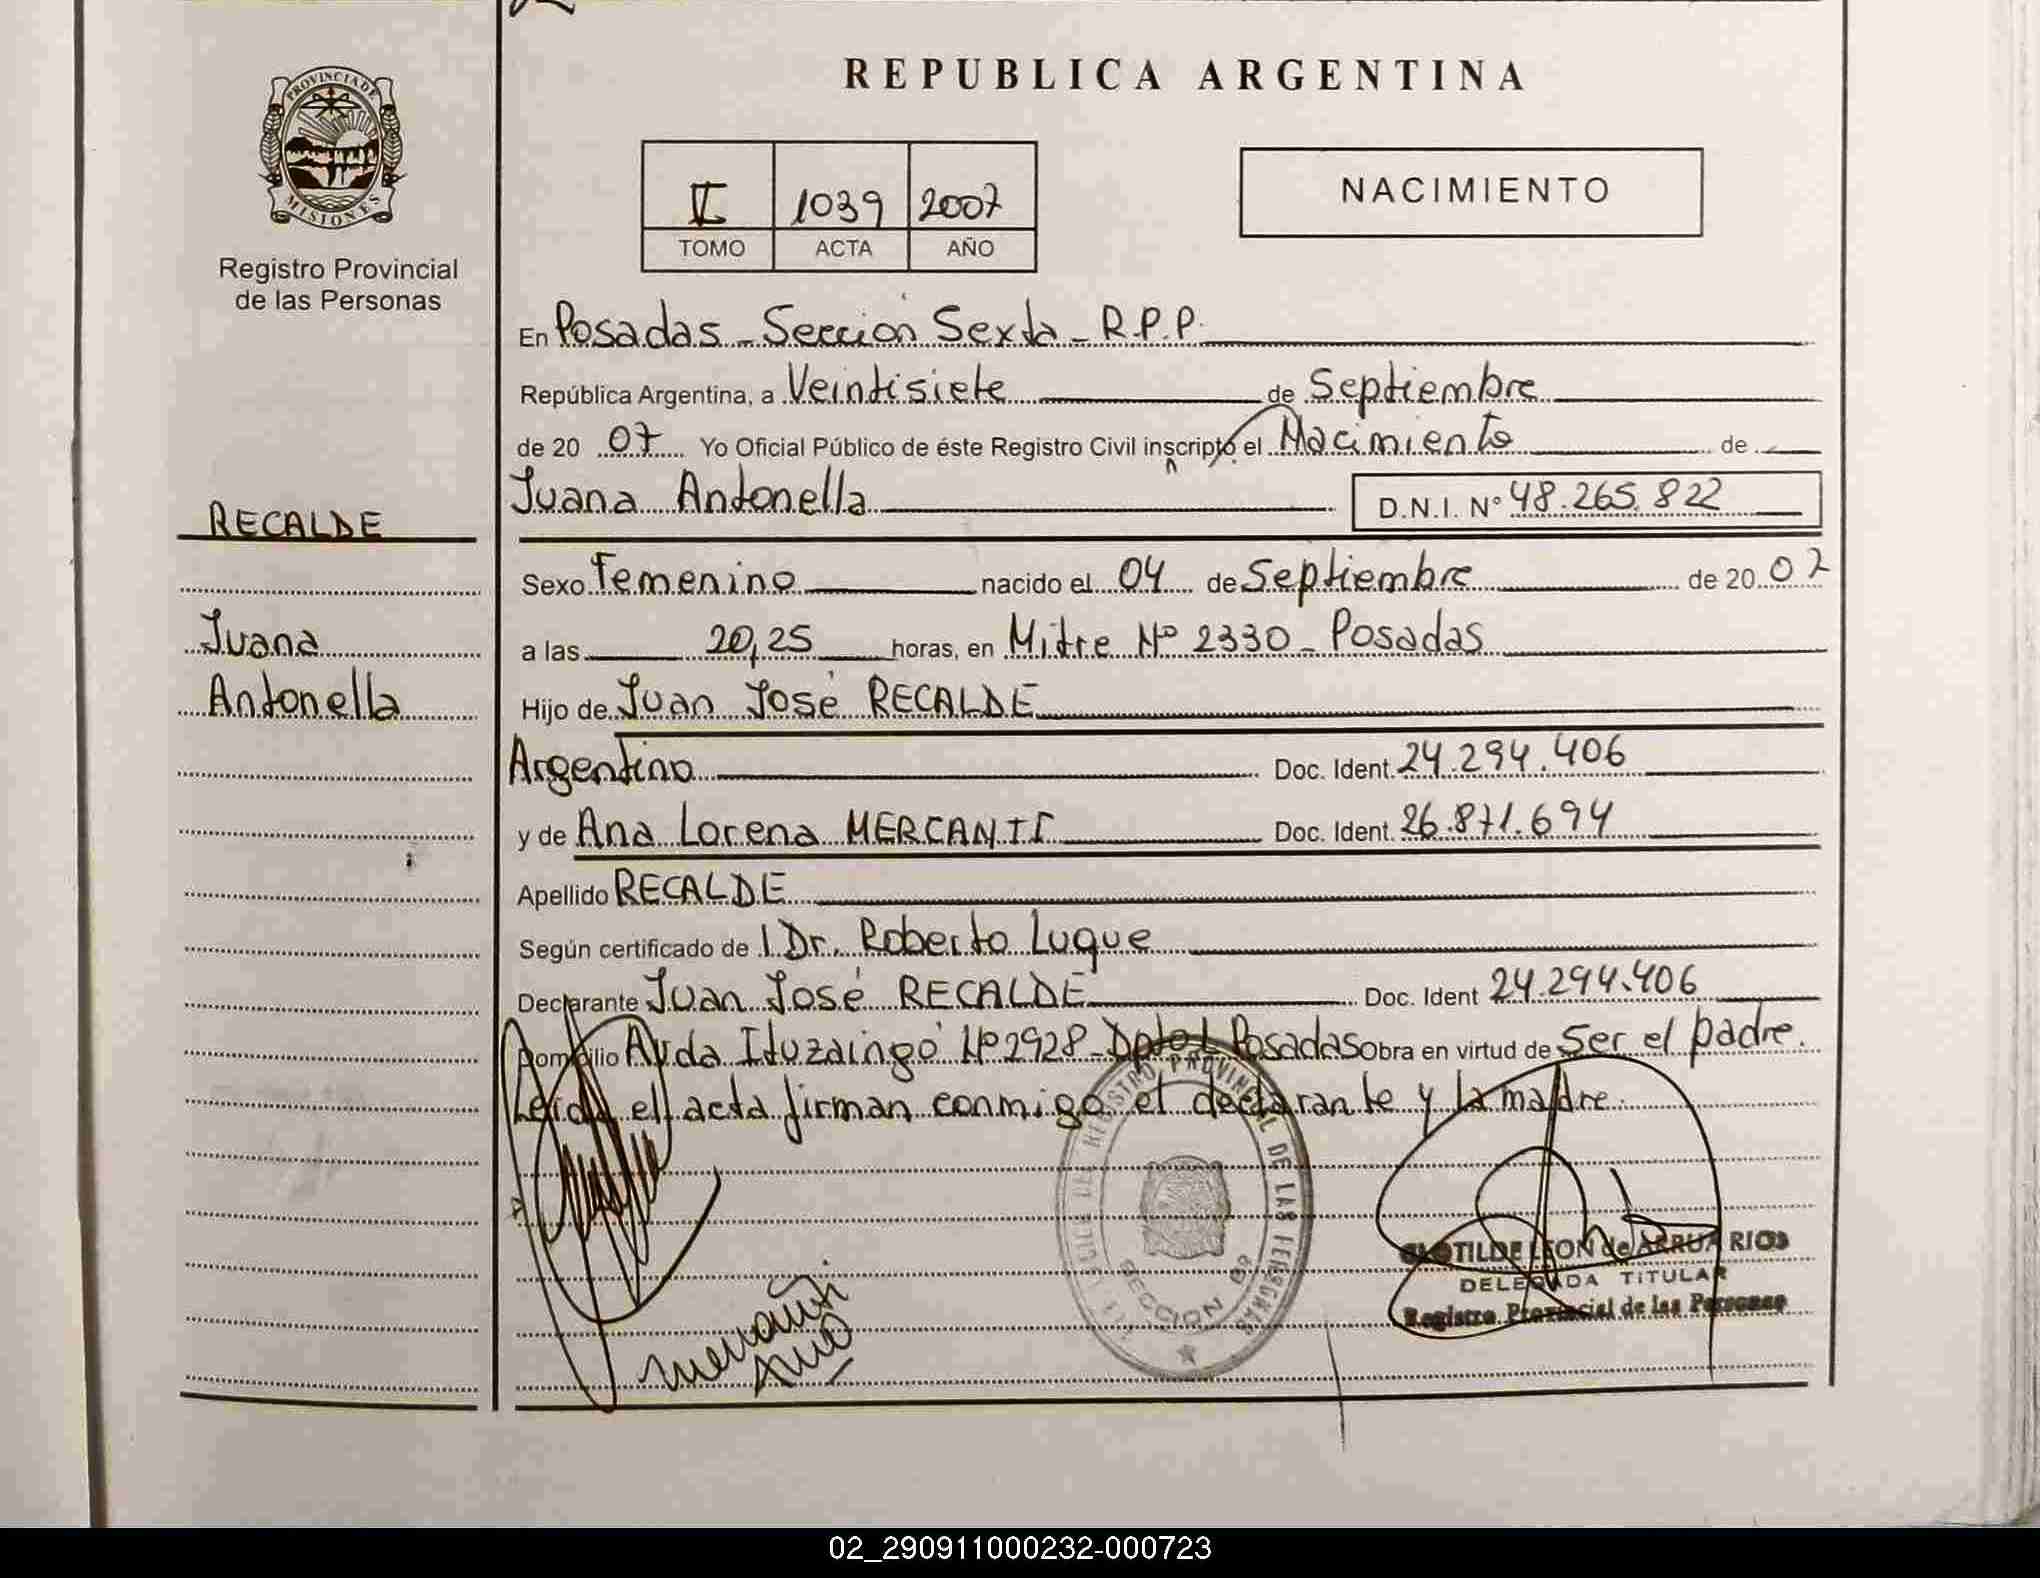 PROVINCIA DE
MISIONES
Registro Provincial
de las Personas
RECALDE
Juana
Antonella
REPUBLICA ARGENTINA
II 1039 2007
TOMO ACTA AÑO
NACIMIENTO
En Posadas - Sección Sexta - R.P.P.
República Argentina, a Veintisiete de Septiembre
de 20 07 Yo Oficial Público de éste Registro Civil inscripto el Nacimiento de
Juana Antonella D.N.I. N° 48.265.822
Sexo Femenino nacido el 04 de Septiembre de 20 07
a las 20,25 horas, en Mitre Nº 2330 - Posadas
Hijo de Juan José RECALDE
Argentino Doc. Ident. 24.294.406
y de Ana Lorena MERCANTI Doc. Ident. 26.871.694
Apellido RECALDE
Según certificado de l Dr. Roberto Luque
Declarante Juan José RECALDE Doc. Ident 24.294.406
Domicilio Avda Ituzaingó Nº 2928 - Posadas Obra en virtud de Ser el padre.
Leida el acta firman conmigo el declarante y la madre.
REGISTRO PROVINCIAL DE LAS PERSONAS
SECCION 6ª
Mercanti
Ana
CLOTILDE LEON de ARRUA RIOS
DELEGADA TITULAR
Registro Provincial de las Personas
02_290911000232-000723